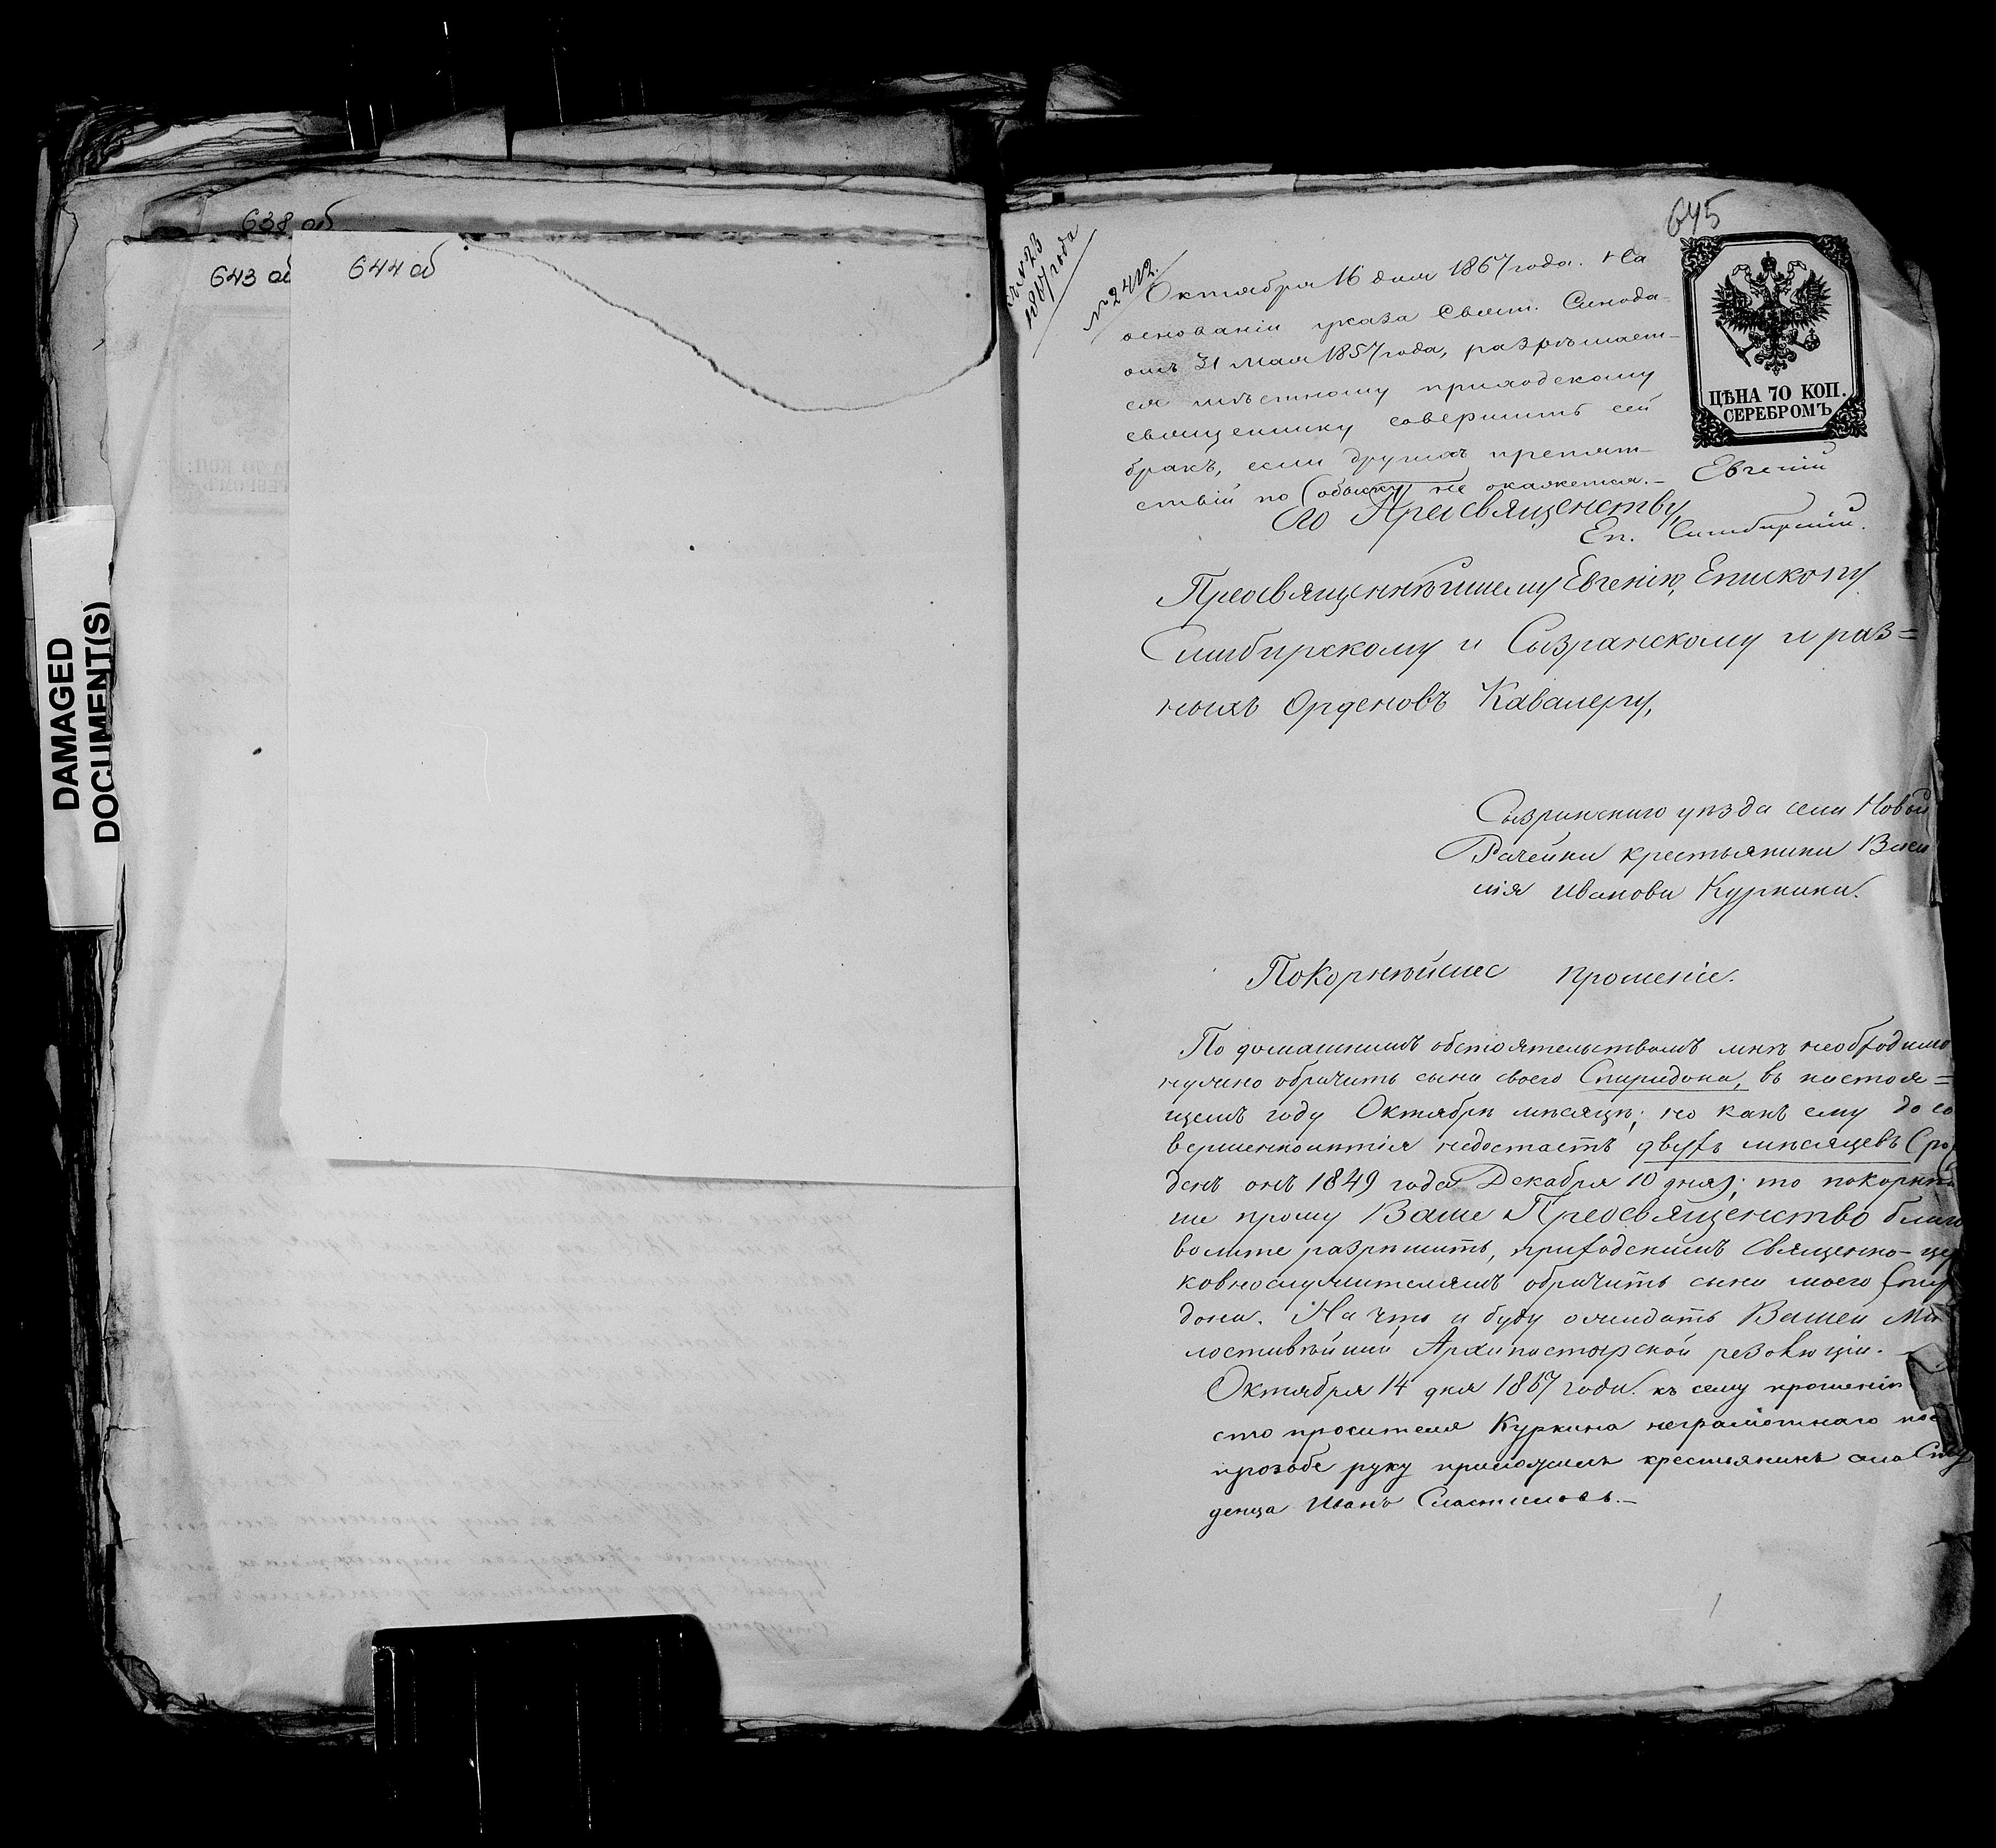 638 об
643 об
644 об
DAMAGED
DOCUMENT(S)
645
1867 года
№ 2412.
Октября 16 дня 1867 года. На
основаніи указа Свят. Синода
отъ 31 Мая 1857 года, разрѣшает-
ся мѣстному приходскому
священнику совершить сей
бракъ, если другихъ препят-
ствій по обыску не окажется.-
Евгеній
Еп. Симбирскій.
ЦѢНА 70 КОП.
СЕРЕБРОМЪ
Его Преосвященству,
Преосвященнѣйшему Евгенію, Епископу
Симбирскому и Сызранскому и раз=
ныхъ Орденовъ Кавалеру,
Сызранскаго уѣзда села Новой
Рачейки крестьянина Васи
лія Иванова Куркина.
Покорнѣйшее прошеніе.
По домашнимъ обстоятельствамъ мнѣ необходимо
нужно обрачить сына своего Спиридона, въ настоя=
щемъ году Октябрѣ мѣсяцѣ; но какъ ему до со
вершеннолѣтія недостаетъ двухъ мѣсяцевъ (ро
денъ онъ 1849 года Декабря 10 дня); то покорнѣй
ше прошу Ваше Преосвященство благо
волите разрѣшить, приходскимъ Священно-цер
ковнослужителямъ обрачить сына моего Спир
дона. На что и буду ожидать Вашей Ми
лостивѣйшей Архипастырской резолюціи.
Октября 14 дня 1867 года. къ сему прошенію
сто просителя Куркина неграмотнаго по е
прозьбе руку приложилъ крестьянинъ села Сту
денца Иванъ Сластиловъ.-